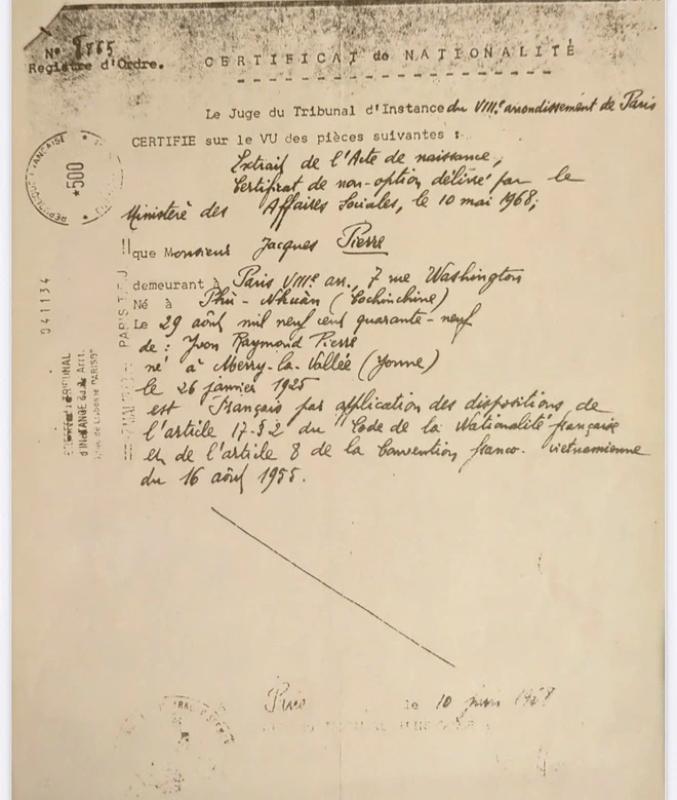 N° 8865
Registre d'Ordre.
CERTIFICAT de NATIONALITÉ
Le Juge du Tribunal d'Instance du VIIIe arrondissement de Paris
CERTIFIE sur le VU des pièces suivantes :
Extrait de l'Acte de naissance,
Certificat de non-option délivré par le
Ministère des Affaires Sociales, le 10 mai 1968;
RÉPUBLIQUE FRANÇAISE
*500
que Monsieur Jacques Pierre
demeurant à Paris VIIIe arr., 7 rue Washington
Né à Phù-Nhuân (Cochinchine)
Le 29 août mil neuf cent quarante-neuf
de : Yvon Raymond Pierre
né à Merry-la-Vallée (Yonne)
le 26 janvier 1925
est Français par application des dispositions de
l'article 17-§2 du Code de la Nationalité française
et de l'article 8 de la Convention franco-vietnamienne
du 16 août 1955.
041134
TRIBUNAL
d'INSTANCE du Arrt.
PARIS
Paris le 10 1968